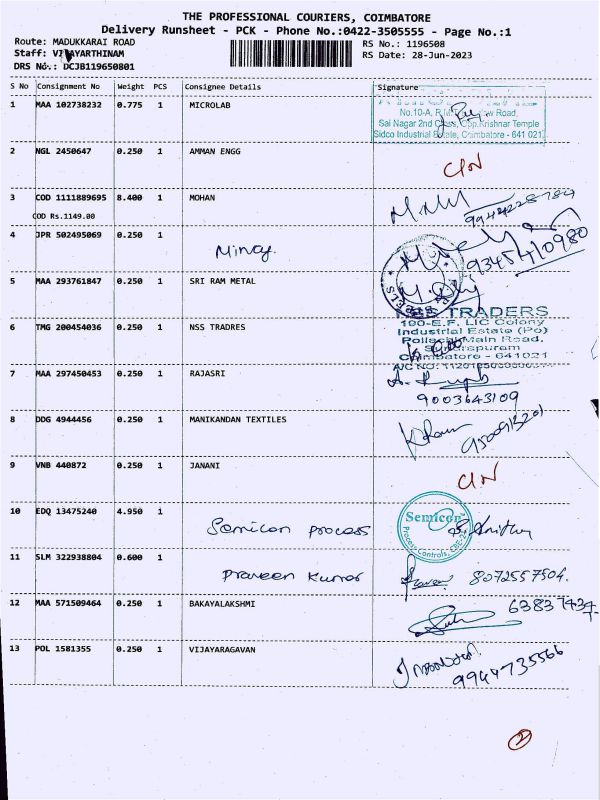 THE PROFESSIONAL COURIERS, COIMBATORE
Delivery Runsheet - PCK - Phone No.:0422-3505555 - Page No.:1
Route: MADUKKARAI ROAD RS No.: 1196508
Staff: VIJAYARTHINAM RS Date: 28-Jun-2023
DRS No.: DCJB119650801
S No Consignment No Weight PCS Consignee Details Signature
1 MAA 102738232 0.775 1 MICROLAB
Sai Nagar 2nd Cross, Opp.Krishnar Temple
Sidco Industrial Estate, Coimbatore - 641 021
2 NGL 2450647 0.250 1 AMMAN ENGG
3 COD 1111889695 8.400 1 MOHAN
COD Rs.1149.00
4 JPR 502495069 0.250 1
9345410980
5 MAA 293761847 0.250 1 SRI RAM METAL
6 TMG 200454036 0.250 1 NSS TRADRES
NSS TRADERS
190-E.F. LIC Colony
Industrial Estate (Po)
Pollachi Main Road,
Coimbatore - 641021
7 MAA 297450453 0.250 1 RAJASRI
9003643109
8 DDG 4944456 0.250 1 MANIKANDAN TEXTILES
9 VNB 440872 0.250 1 JANANI
10 EDQ 13475240 4.950 1 Semicon process
Semicon
Process Controls, CBE-21
11 SLM 322938804 0.600 1 Praveen Kumar 8072557504.
12 MAA 571509464 0.250 1 BAKAYALAKSHMI
13 POL 1581355 0.250 1 VIJAYARAGAVAN
9944735566
2